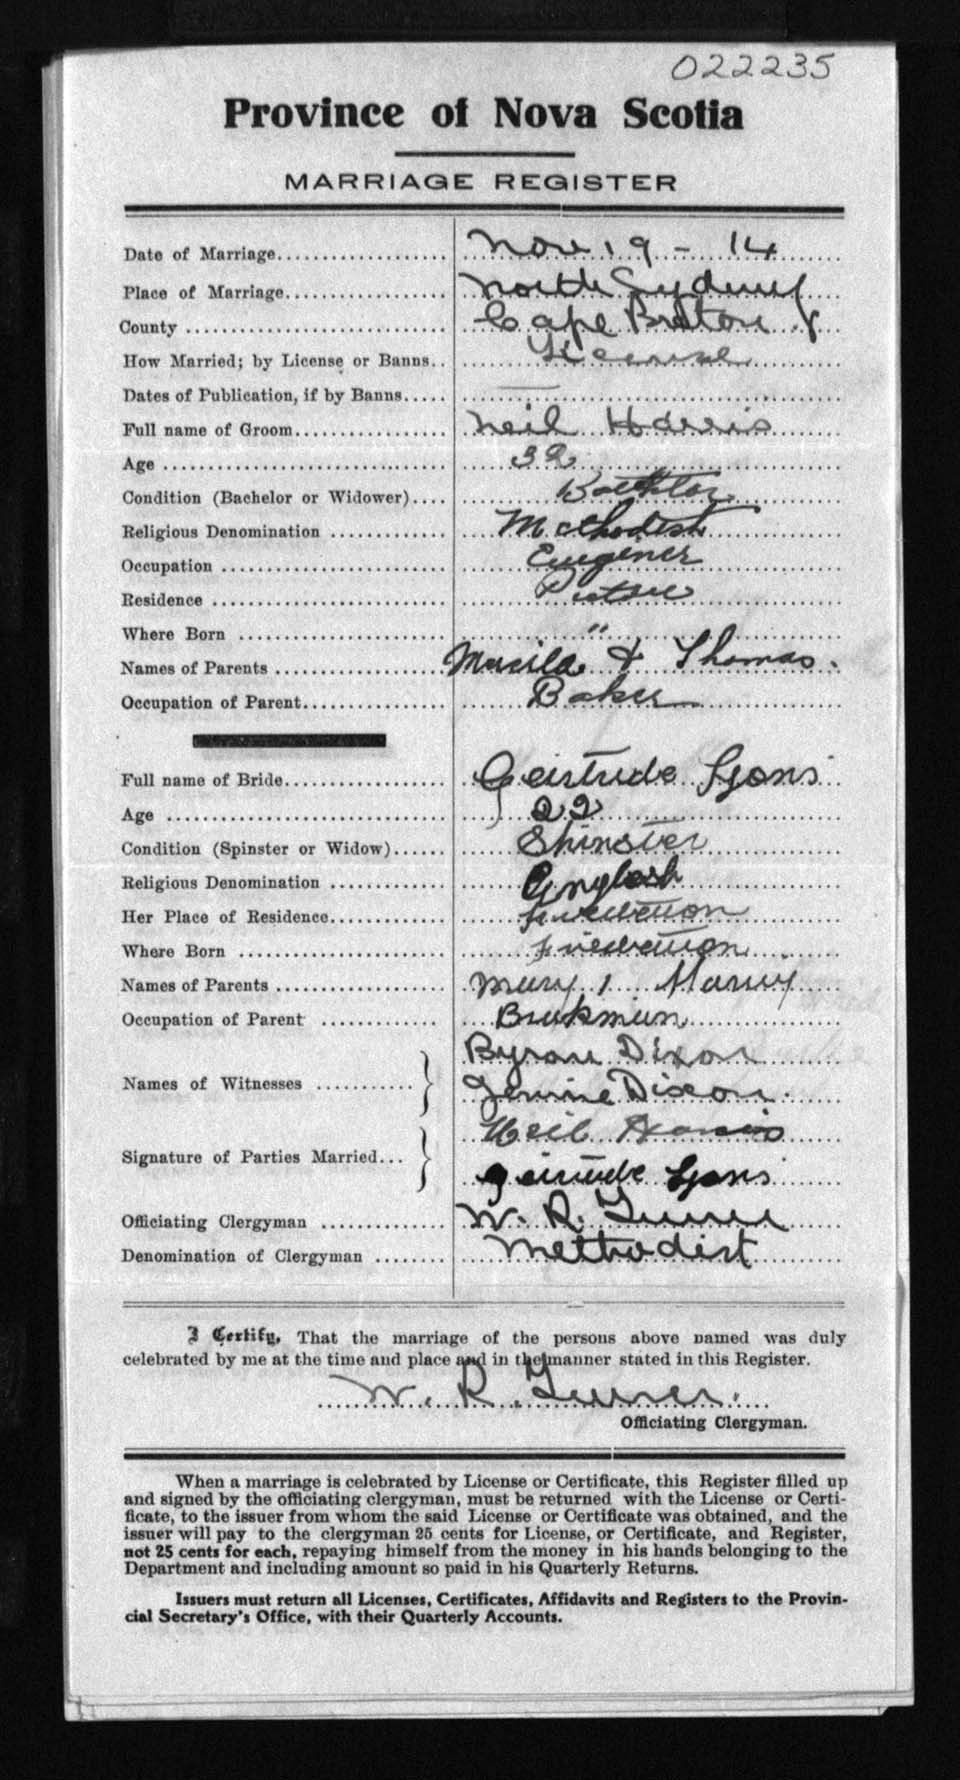 022235
Province of Nova Scotia
MARRIAGE REGISTER
Date of Marriage.................... Nov 19 - 14
Place of Marriage.................. North Sydney
County ............................ Cape Breton
How Married; by License or Banns.. License
Dates of Publication, if by Banns..... —
Full name of Groom................ Neil Harris
Age .............................. 32
Condition (Bachelor or Widower)....
Religious Denomination ............ Methodist
Occupation ........................
Residence ......................... Pictou
Where Born ........................ "
Names of Parents .................. & Thomas.
Occupation of Parent................ Baker
Full name of Bride.................. Geirtrude Lyons
Age .............................. 22
Condition (Spinster or Widow)...... Shinster
Religious Denomination ............
Her Place of Residence.............
Where Born ........................
Names of Parents .................. Mary, Harvy
Occupation of Parent ..............
Names of Witnesses ............ Byron Dixon
Dixon
Signature of Parties Married... Neil Harris
Geirtrude Lyons
Officiating Clergyman ............. W. R. Turner
Denomination of Clergyman ........ Methodist
I Certify, That the marriage of the persons above named was duly
celebrated by me at the time and place and in the manner stated in this Register.
W. R. Turner.
Officiating Clergyman.
When a marriage is celebrated by License or Certificate, this Register filled up
and signed by the officiating clergyman, must be returned with the License or Certi-
ficate, to the issuer from whom the said License or Certificate was obtained, and the
issuer will pay to the clergyman 25 cents for License, or Certificate, and Register,
not 25 cents for each, repaying himself from the money in his hands belonging to the
Department and including amount so paid in his Quarterly Returns.
Issuers must return all Licenses, Certificates, Affidavits and Registers to the Provin-
cial Secretary's Office, with their Quarterly Accounts.